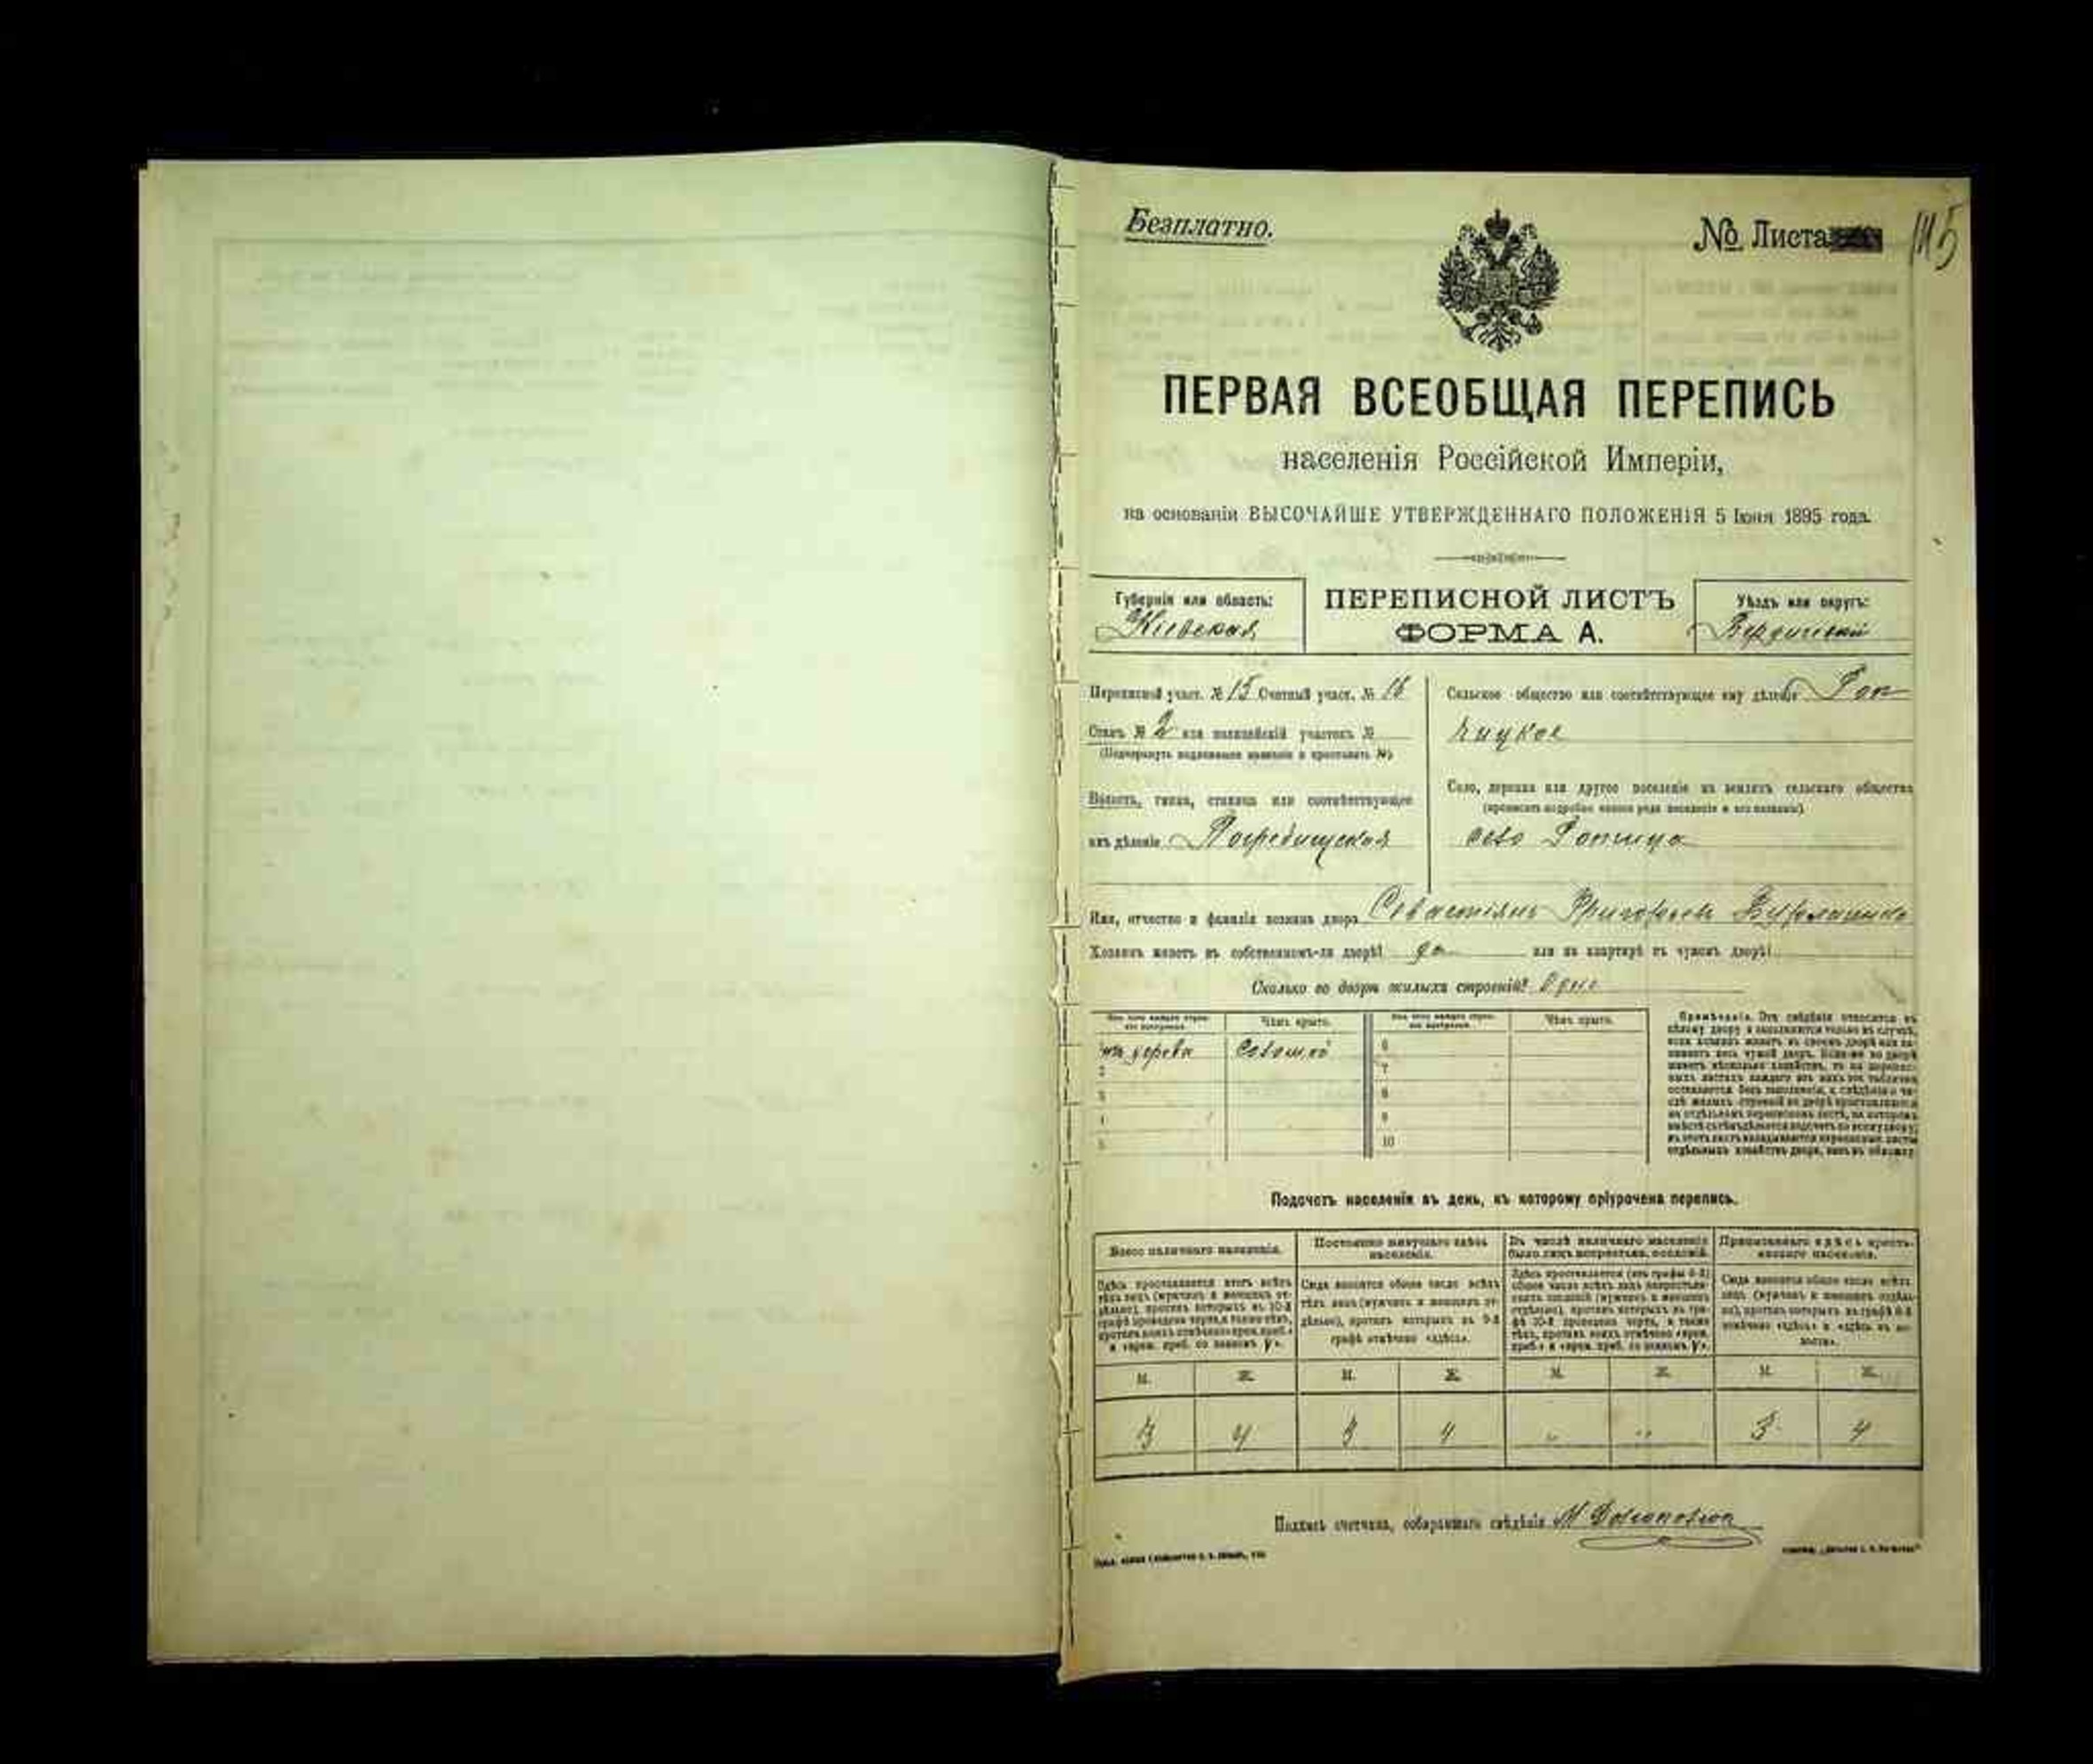 Безплатно.
№ Листа 115
ПЕРВАЯ ВСЕОБЩАЯ ПЕРЕПИСЬ
населенія Россійской Имперіи,
на основаніи ВЫСОЧАЙШЕ УТВЕРЖДЕННАГО ПОЛОЖЕНІЯ 5 Іюня 1895 года.
Губернія или область:
Кіевская
ПЕРЕПИСНОЙ ЛИСТЪ
ФОРМА А.
Уѣздъ или округъ:
Бердичевскій
Переписной участ. № 15 Счетный участ. № 16
Станъ № 2 или полицейскій участокъ №
(Подчеркнуть надлежащее названіе и проставить №)
Волость, гмина, станица или соотвѣтствующее
имъ дѣленіе Погребищская
Сельское общество или соотвѣтствующее ему дѣленіе
чицкое
Село, деревня или другое поселеніе на земляхъ сельскаго общества
(прописать подробно какого рода поселеніе и его названіе)
село
Имя, отчество и фамилія хозяина двора Севастіянъ Григорьевъ
Хозяинъ живетъ въ собственномъ-ли дворѣ? да или на квартирѣ въ чужомъ дворѣ?
Сколько во дворѣ жилыхъ строеній? Одно
Изъ чего каждое строеніе построено. Чѣмъ крыто. Изъ чего каждое строеніе построено. Чѣмъ крыто.
изъ дерева соломой 6
2 7
3 8
4 9
5 10
Примѣчаніе. Эти свѣдѣнія относятся къ
цѣлому двору и заполняются только въ случаѣ,
если хозяинъ живетъ въ своемъ дворѣ или за-
нимаетъ весь чужой дворъ. Если-же во дворѣ
живетъ нѣсколько хозяйствъ, то на перепис-
ныхъ листахъ каждаго изъ нихъ эта табличка
оставляется безъ заполненія, а свѣдѣнія о чи-
слѣ жилыхъ строеній во дворѣ проставляются
на отдѣльномъ переписномъ листѣ, на которомъ
вмѣстѣ съ тѣмъ дѣлается подсчетъ по всему двору;
въ этотъ листъ вкладываются переписные листы
отдѣльныхъ хозяйствъ двора, какъ въ обложку.
Подсчетъ населенія въ день, къ которому пріурочена перепись.
Всего наличнаго населенія.
Здѣсь проставляется итогъ всѣхъ
тѣхъ лицъ (мужчинъ и женщинъ от-
дѣльно), противъ которыхъ въ 10-й
графѣ проведена черта, а также тѣхъ,
противъ коихъ отмѣчено «врем. преб.»
и «врем. преб. со знакомъ V».
Постоянно живущаго здѣсь
населенія.
Сюда вносится общее число всѣхъ
тѣхъ лицъ (мужчинъ и женщинъ от-
дѣльно), противъ которыхъ въ 9-й
графѣ отмѣчено «здѣсь».
Въ числѣ наличнаго населенія
было лицъ некрестьян. сословій.
Здѣсь проставляется (изъ графы 6-й)
общее число всѣхъ лицъ некрестьян-
скихъ сословій (мужчинъ и женщинъ
отдѣльно), противъ которыхъ въ гра-
фѣ 10-й проведена черта, а также
тѣхъ, противъ коихъ отмѣчено «врем.
преб.» и «врем. преб. со знакомъ V».
Приписаннаго здѣсь кресть-
янскаго населенія.
Сюда вносится общее число всѣхъ
лицъ (мужчинъ и женщинъ отдѣль-
но), противъ которыхъ въ графѣ 8-й
отмѣчено «здѣсь» и «здѣсь въ во-
лости».
М. Ж. М. Ж. М. Ж. М. Ж.
3 4 3 4 " " 3 4
Подпись счетчика, собиравшаго свѣдѣнія